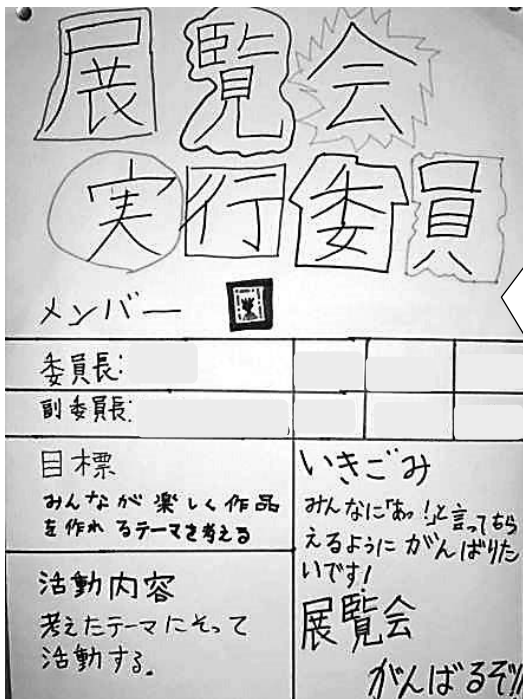 展覧会
実行委員
メンバー
委員長:
副委員長:
目標
みんなが楽しく作品
を作れるテーマを考える
活動内容
考えたテーマにそって
活動する。
いきごみ
みんなに「あっ!」と言ってもら
えるようにがんばりた
いです!
展覧会
がんばるぞ!!